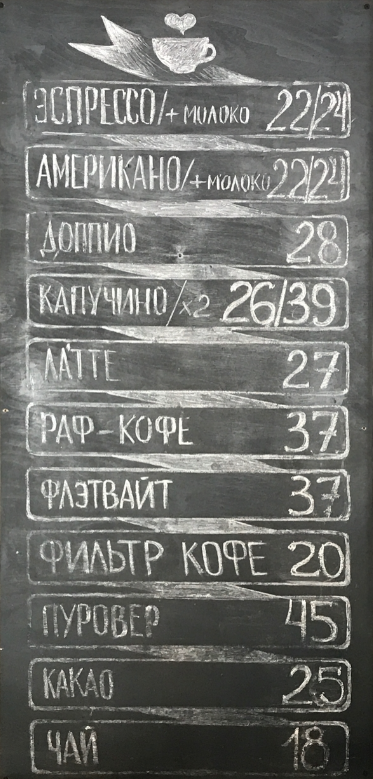 ЭСПРЕССО/+ МОЛОКО 22/24
АМЕРИКАНО/+МОЛОКО 22/24
ДОППИО 28
КАПУЧИНО/х2 26/39
ЛА́ТТЕ 27
РАФ-КОФЕ 37
ФЛЭТВАЙТ 37
ФИЛЬТР КОФЕ 20
ПУРОВЕР 45
КАКАО 25
ЧАЙ 18